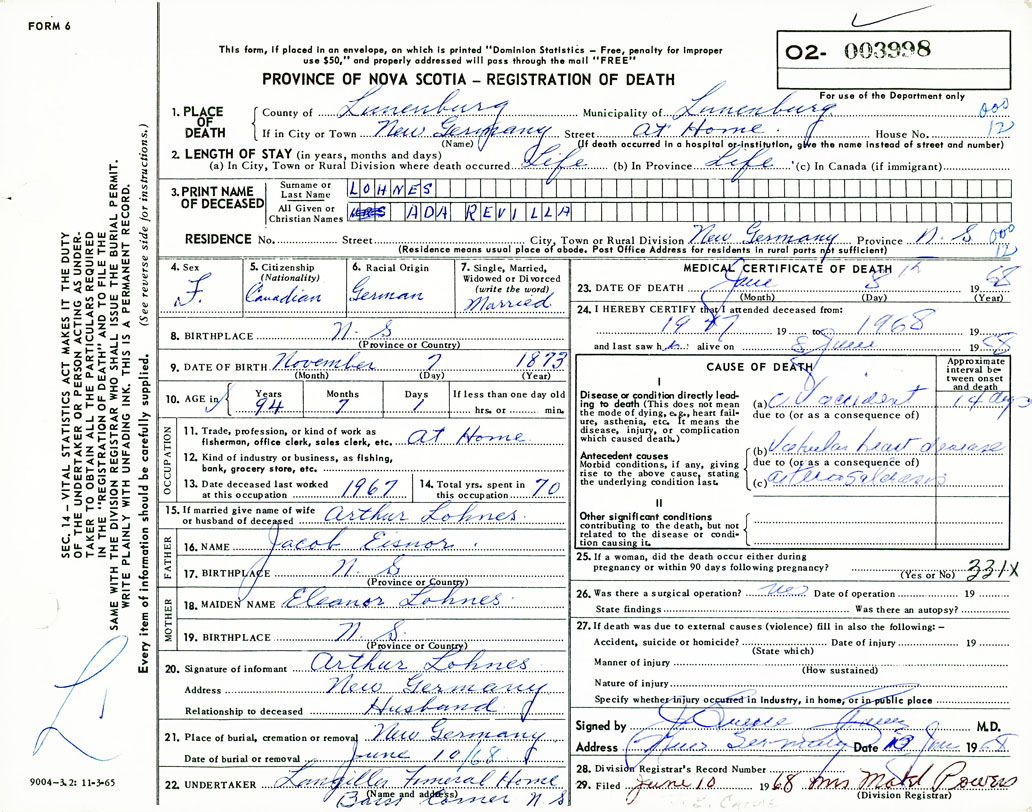 FORM 6
This form, if placed in an envelope, on which is printed "Dominion Statistics – Free, penalty for improper
use $50," and properly addressed will pass through the mail "FREE"
PROVINCE OF NOVA SCOTIA – REGISTRATION OF DEATH
02- 003998
For use of the Department only
SEC. 14 – VITAL STATISTICS ACT MAKES IT THE DUTY
OF THE UNDERTAKER OR PERSON ACTING AS UNDER-
TAKER TO OBTAIN ALL THE PARTICULARS REQUIRED
IN THE "REGISTRATION OF DEATH" AND TO FILE THE
SAME WITH THE DIVISION REGISTRAR WHO SHALL ISSUE THE BURIAL PERMIT.
WRITE PLAINLY WITH UNFADING INK. THIS IS A PERMANENT RECORD.
Every item of information should be carefully supplied. (See reverse side for instructions.)
1. PLACE OF DEATH
County of Lunenburg Municipality of Lunenburg 000
If in City or Town New Germany Street At Home House No. 12
(Name) (If death occurred in a hospital or institution, give the name instead of street and number)
2. LENGTH OF STAY (in years, months and days)
(a) In City, Town or Rural Division where death occurred Life (b) In Province Life (c) In Canada (if immigrant)
3. PRINT NAME OF DECEASED
Surname or Last Name LOHNES
All Given or Christian Names MRS ADA REVILLA
RESIDENCE No. Street City, Town or Rural Division New Germany Province N. S 000
(Residence means usual place of abode. Post Office Address for residents in rural parts not sufficient) 12
4. Sex F.
5. Citizenship (Nationality) Canadian
6. Racial Origin German
7. Single, Married, Widowed or Divorced (write the word) Married
8. BIRTHPLACE N. S
(Province or Country)
9. DATE OF BIRTH November 7 1873
(Month) (Day) (Year)
10. AGE in Years 94 Months 7 Days 1 If less than one day old hrs. or min.
OCCUPATION
11. Trade, profession, or kind of work as fisherman, office clerk, sales clerk, etc. At Home
12. Kind of industry or business, as fishing, bank, grocery store, etc.
13. Date deceased last worked at this occupation 1967 14. Total yrs. spent in this occupation 70
15. If married give name of wife or husband of deceased Arthur Lohnes
FATHER
16. NAME Jacob Eisnor
17. BIRTHPLACE N. S
(Province or Country)
MOTHER
18. MAIDEN NAME Eleanor Lohnes
19. BIRTHPLACE N. S.
(Province or Country)
20. Signature of informant Arthur Lohnes
Address New Germany
Relationship to deceased Husband
21. Place of burial, cremation or removal New Germany
Date of burial or removal June 10/68
22. UNDERTAKER Langilles Funeral Home
(Name and address) Barss Corner N S
9004-3.2: 11-3-65
MEDICAL CERTIFICATE OF DEATH
23. DATE OF DEATH June 8 1968
(Month) (Day) (Year)
24. I HEREBY CERTIFY that I attended deceased from:
19 to 1968 19
and last saw h alive on 8 June 19
CAUSE OF DEATH
Approximate interval between onset and death
I
Disease or condition directly leading to death (This does not mean the mode of dying, e.g., heart failure, asthenia, etc. It means the disease, injury, or complication which caused death.)
(a) C V accident 14 days
due to (or as a consequence of)
Antecedent causes
Morbid conditions, if any, giving rise to the above cause, stating the underlying condition last.
(b) heart disease
due to (or as a consequence of)
(c)
II
Other significant conditions contributing to the death, but not related to the disease or condition causing it.
25. If a woman, did the death occur either during pregnancy or within 90 days following pregnancy?
(Yes or No) 331X
26. Was there a surgical operation? Date of operation 19
State findings Was there an autopsy?
27. If death was due to external causes (violence) fill in also the following: –
Accident, suicide or homicide? Date of injury 19
(State which)
Manner of injury
(How sustained)
Nature of injury
Specify whether injury occurred in industry, in home, or in public place
Signed by M.D.
Address New Germany Date 10 June 1968
28. Division Registrar's Record Number
29. Filed June 10 1968 Powers
(Division Registrar)